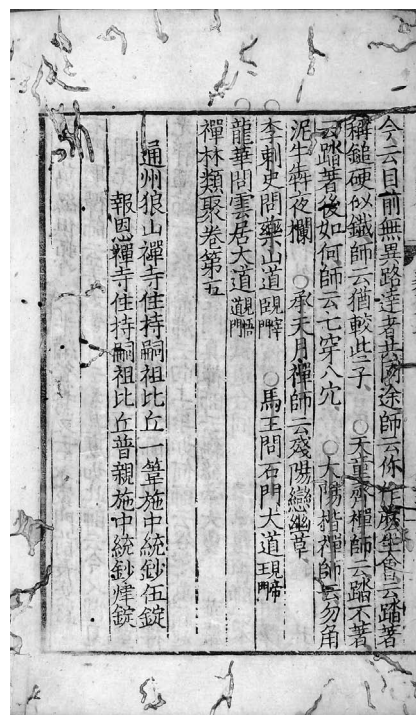 今云目前無異路達者共同途師云你作麽生會云踏著
秤鎚硬似鐵師云猶較些子 ○天童齊禪師云踏不著
云踏著後如何師云七穿八穴 ○大陽楷禪師云勿角
泥牛犇夜欄 ○承天月禪師云殘陽戀幽草
李刺史問藥山道 見宰臣門 ○馬王問石門大道 見帝王門
龍華問雲居大道 見悟道門
禪林類聚卷第五
通州狼山禪寺住持嗣祖比丘一筆施中統鈔伍錠
報恩禪寺住持嗣祖比丘普親施中統鈔肆錠